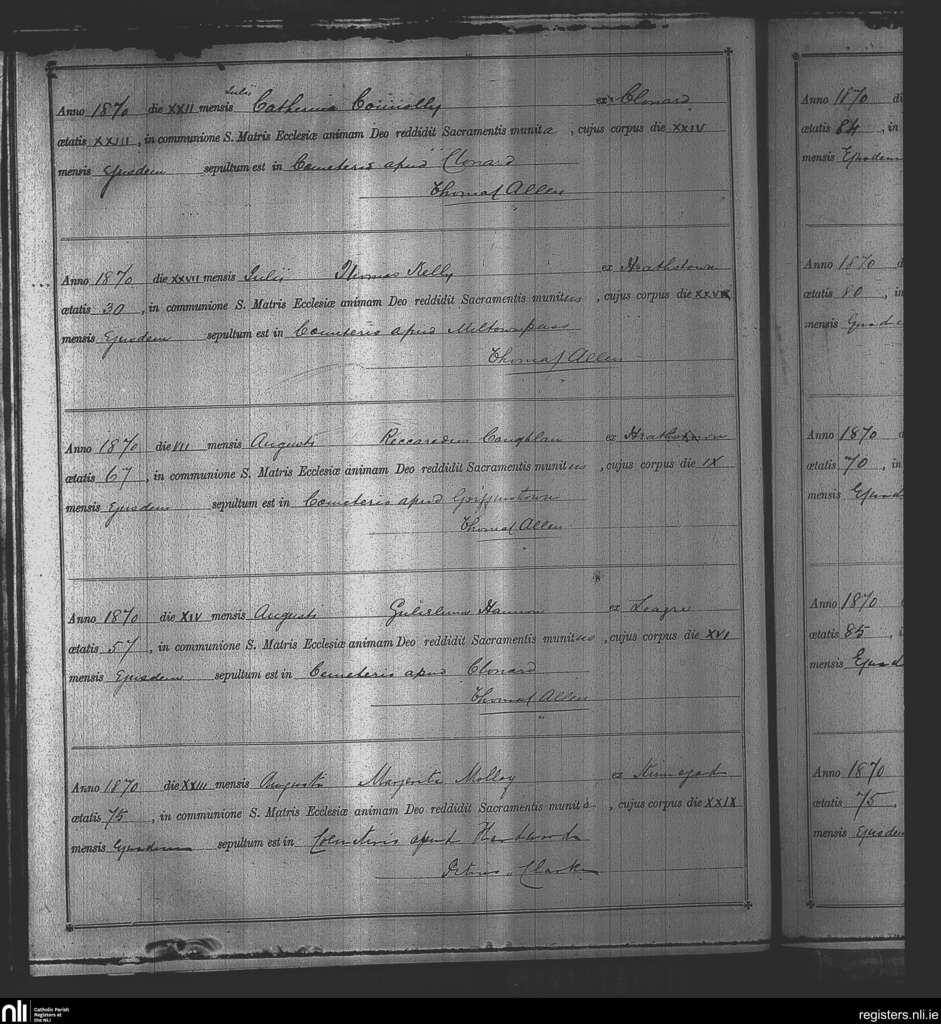 Julii
Anno 1870 die XXII mensis Catherina Connolly ex Clonard
ætatis XXIII, in communione S. Matris Ecclesiæ animam Deo reddidit Sacramentis munita, cujus corpus die XXIV
mensis Ejusdem sepultum est in Cemeterio apud Clonard
Thomas Allen
Anno 1870 die XXVII mensis Julii Thomas Kelly ex
ætatis 30, in communione S. Matris Ecclesiæ animam Deo reddidit Sacramentis munitus, cujus corpus die
mensis Ejusdem sepultum est in Cemeterio apud Miltownpass
Thomas Allen
Anno 1870 die VII mensis Augusti Riccardus Coughlan ex
ætatis 67, in communione S. Matris Ecclesiæ animam Deo reddidit Sacramentis munitus, cujus corpus die IX
mensis Ejusdem sepultum est in Cemeterio apud Griffinstown
Thomas Allen
Anno 1870 die XIV mensis Augusti Gulielmus Hannon ex
ætatis 57, in communione S. Matris Ecclesiæ animam Deo reddidit Sacramentis munitus, cujus corpus die XVI
mensis Ejusdem sepultum est in Cemeterio apud Clonard
Thomas Allen
Anno 1870 die XXIII mensis Augusti Margarita Molloy ex
ætatis 75, in communione S. Matris Ecclesiæ animam Deo reddidit Sacramentis munita, cujus corpus die XXIX
mensis Ejusdem sepultum est in apud
Petrus Clarke
Anno 1870 di
ætatis 84, in
mensis Ejusdem
Anno 1870 d
ætatis 80, in
mensis
Anno 1870 d
ætatis 70, in
mensis Ejusd
Anno 1870
ætatis 85, i
mensis Ejusd
Anno 1870
ætatis 75,
mensis Ejusdem
nli Catholic Parish
Registers at
the NLI
registers.nli.ie